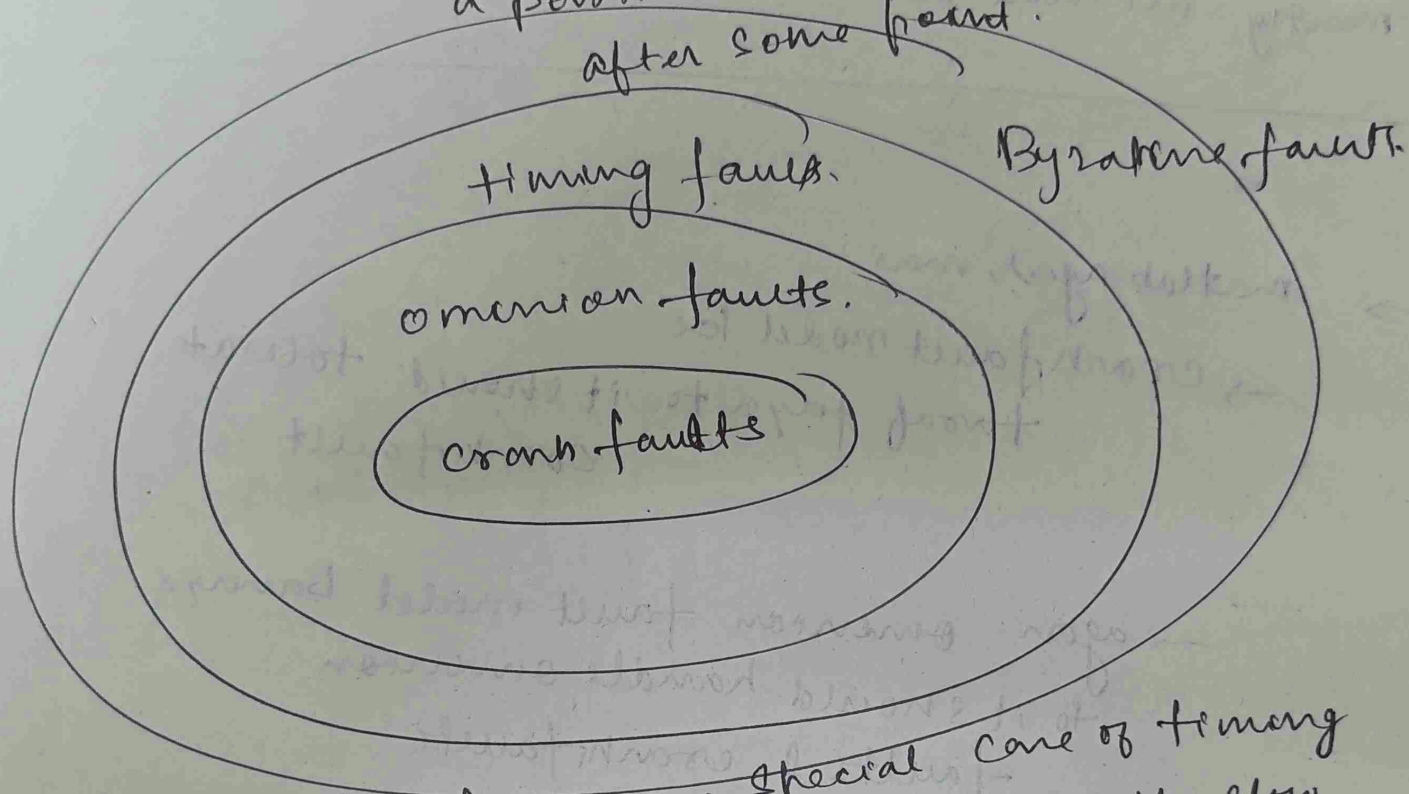 a
after some point.
timing faults.
Byzantine faults.
omission faults.
crash faults
special case of timing